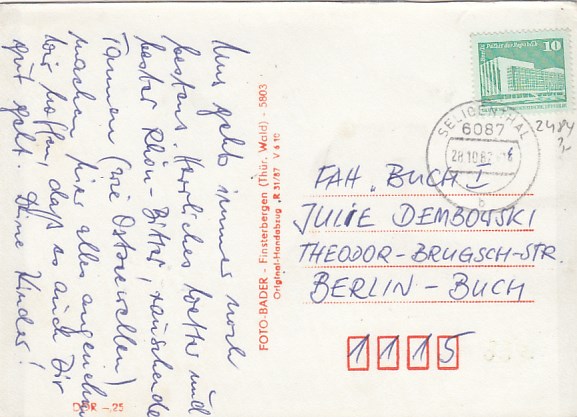 Uns gehts immer noch
bestens. Herrliches Wetter und
bester Rhön-Bitter, rauschende
Tannen (wie Ostseewellen)
machen hier alles angenehm
wir hoffen, daß es auch Dir
gut geht. Deine Kinder!
DDR - 25
FOTO-BADER - Finsterbergen (Thür. Wald) - 5803
Original-Handabzug „R 31/87 V 6 10
10
Palast der Republik
SELIGENTHAL
6087
28.10.82
b
2484
FAH „BUCH I
JULIE DEMBOWSKI
THEODOR-BRUGSCH-STR.
BERLIN-BUCH
1115